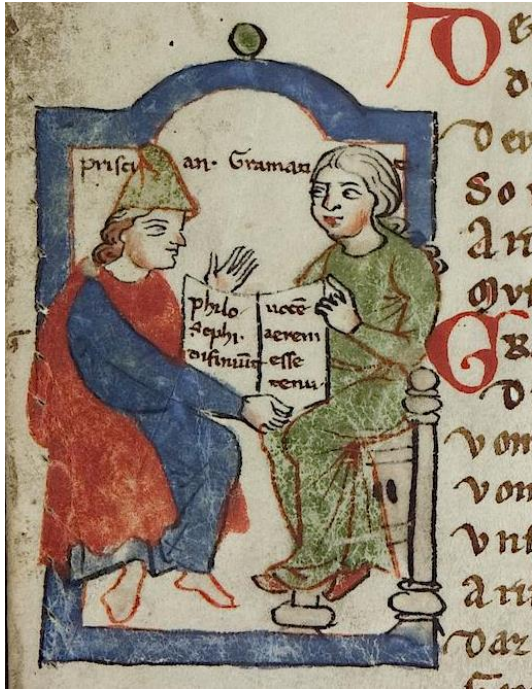 priscian. Gramati c
philo
sephi.
difiniūt
uocē
aerem
esse
tenui
De
d
Deu
So
An
Qut
GR
d
von
von
vnt
Arn
Dar